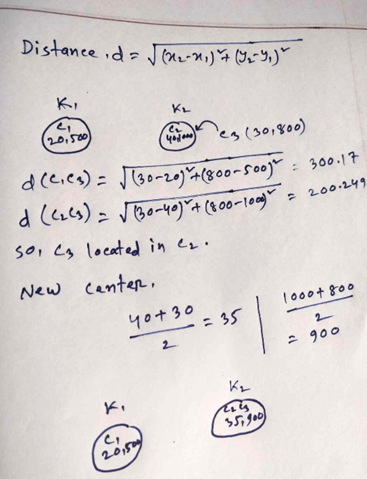 Distance, d = √(x₂-x₁)² + (y₂-y₁)²
K₁ K₂
C₁ 20,500
C₂ 40,1000
C₃ (30,800)
d(C₁C₃) = √(30-20)² + (800-500)² = 300.17
d(C₂C₃) = √(30-40)² + (800-1000)² = 200.249
so, C₃ located in C₂.
New center,
40+30/2 = 35 | 1000+800/2
= 900
K₁ K₂
C₁ 20,500
C₂C₃ 35,900